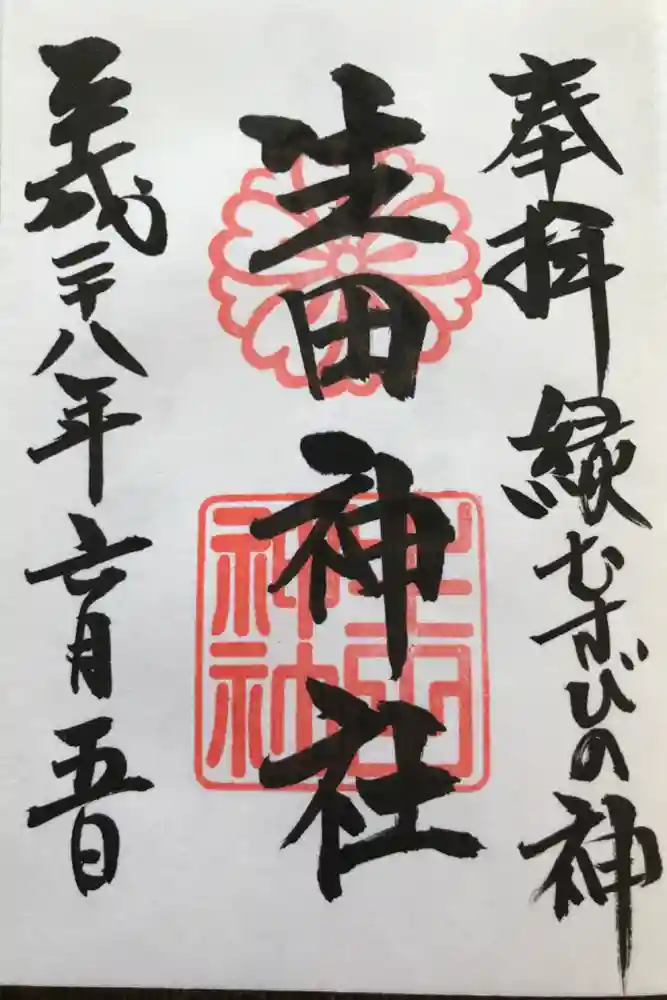 奉拝 縁むすびの神
生田神社
生田
神社
平成二十八年六月五日